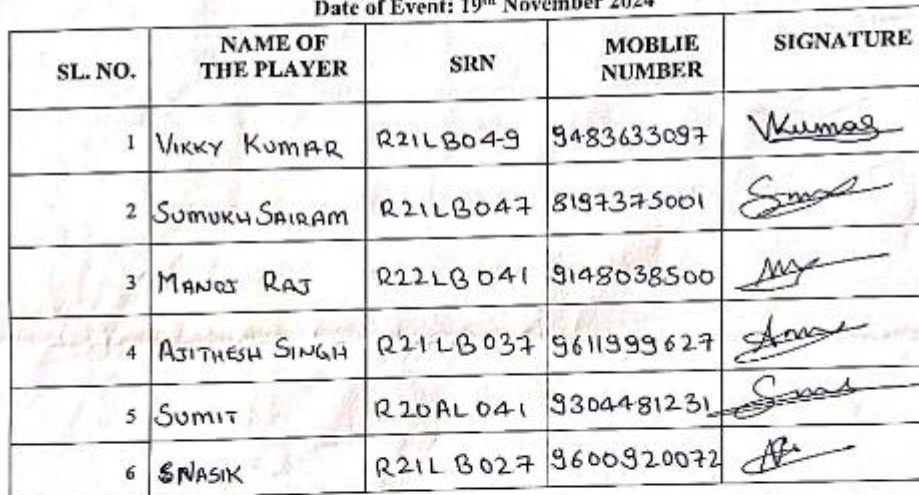 Date of Event: 19th November 2024
SL. NO. NAME OF THE PLAYER SRN MOBLIE NUMBER SIGNATURE
1 VIKKY KUMAR R21LB049 9483633097 VKumar
2 SUMUKH SAIRAM R21LB047 8197375001
3 MANOJ RAJ R22LB041 9148038500
4 AJITHESH SINGH R21LB037 9611999627
5 SUMIT R20AL041 9304481231
6 SNASIK R21LB027 9600920072